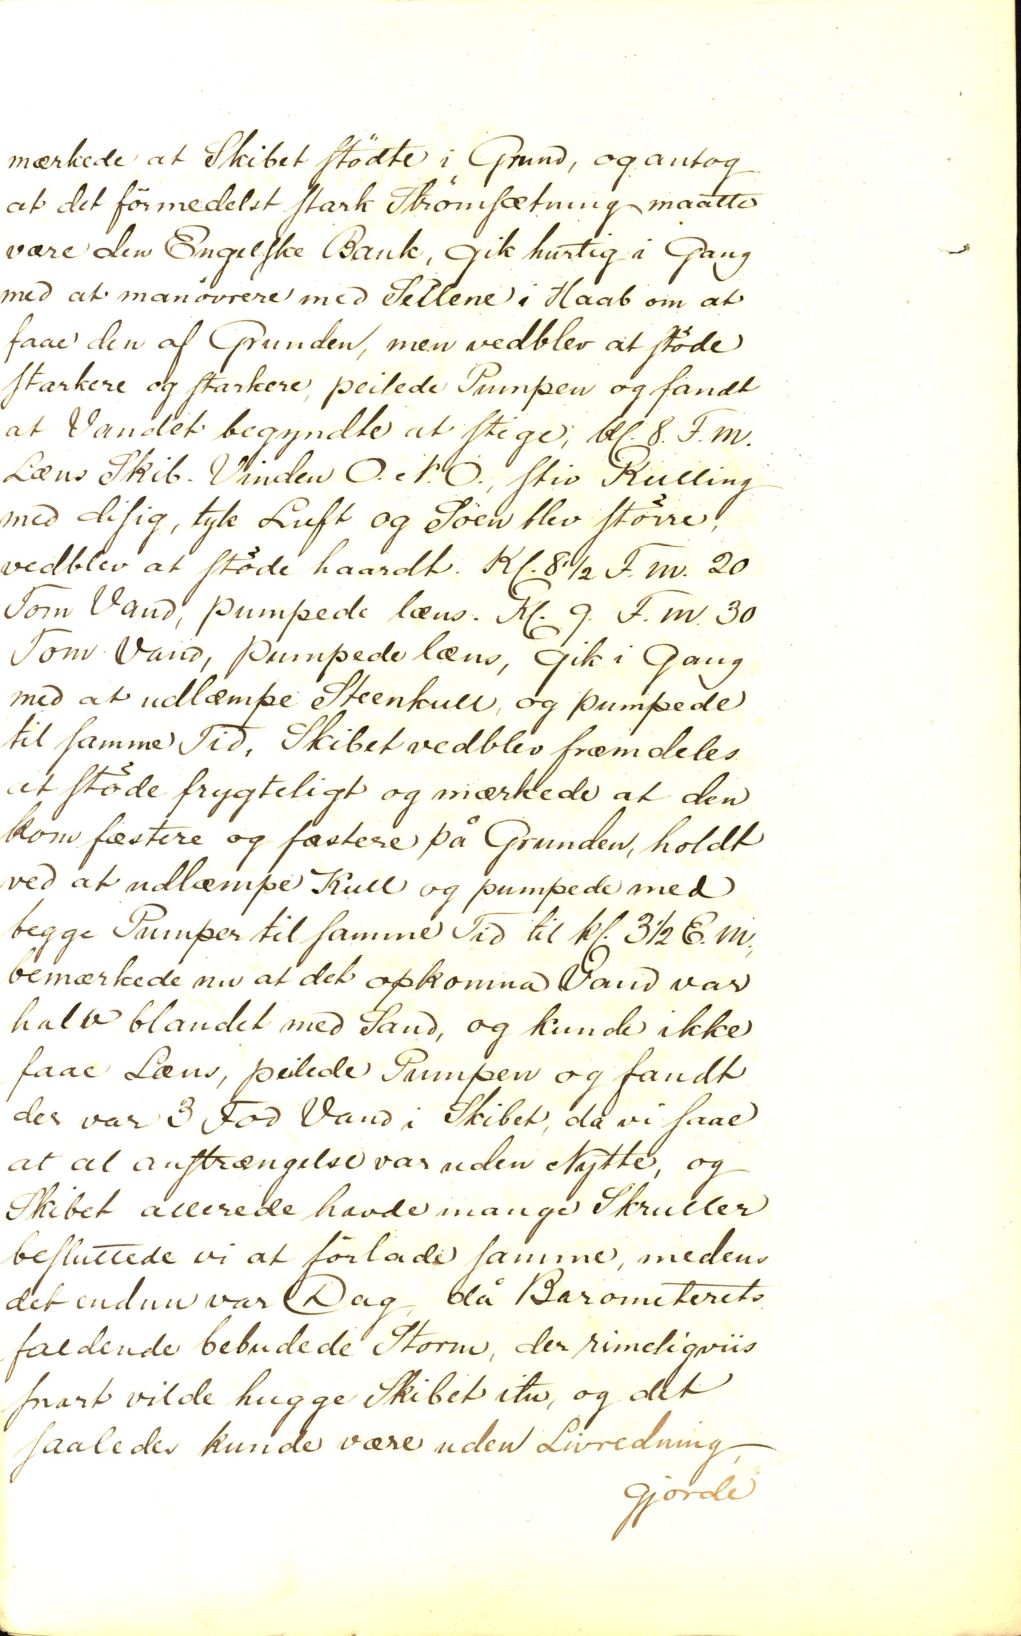 mærkede at Skibet stödte i Grund, og antog
at det förmedelst stark Strömsætning maatte
være den Engelske Bank, gik hurtig i Gang
med at manövrere med Seilene i Haab om at
faae den af Grunden, men vedblev at støde
starkere og starkere, peilede Pumpen og fandt
at Vandet begyndte at stige, Kl. 8. F. m.
Læns Skib. Vinden O. N. O., stiv Kulling
med disig, tyk Luft og Søen blev større,
vedblev at støde haardt. Kl. 8 1/2 F. m. 20
Tom Vand, pumpede læns. Kl. 9. F. m. 30
Tom Vand, pumpede læns, gik i Gang
med at udlæmpe Steenkull, og pumpede
til samme Tid, Skibet vedblev fremdeles
at støde frygteligt og mærkede at den
kom fæstere og fæstere på Grunden, holdt
ved at udlæmpe Kull og pumpede med
begge Pumper til samme Tid til kl. 3 1/2 E. m,
bemærkede nu at det opkomna Vand var
halv blandet med Sand, og kunde ikke
faae Læns, peilede Pumpen og fandt
der var 3 Fod Vand i Skibet, da vi saae
at al anstrængelse var uden Nytte, og
Skibet allerede havde mange Skruller
besluttede vi at förlade samme, medens
det endnu var Dag, då Barometerets
faldende bebudede Storm, der rimeligviis
snart vilde hugge Skibet itu, og det
saaledes kunde være uden Livredning,
gjorde